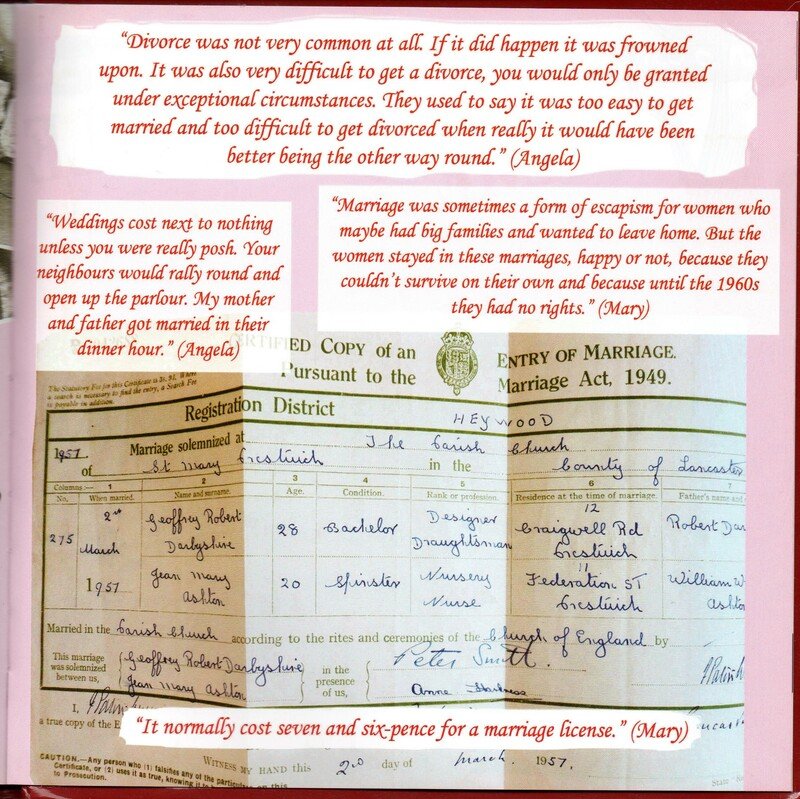 “Divorce was not very common at all. If it did happen it was frowned
upon. It was also very difficult to get a divorce, you would only be granted
under exceptional circumstances. They used to say it was too easy to get
married and too difficult to get divorced when really it would have been
better being the other way round.” (Angela)
“Weddings cost next to nothing
unless you were really posh. Your
neighbours would rally round and
open up the parlour. My mother
and father got married in their
dinner hour.” (Angela)
“Marriage was sometimes a form of escapism for women who
maybe had big families and wanted to leave home. But the
women stayed in these marriages, happy or not, because they
couldn’t survive on their own and because until the 1960s
they had no rights.” (Mary)
COPY OF an ENTRY OF MARRIAGE.
Pursuant to the Marriage Act, 1949.
The Statutory Fee for this Certificate is 3s. 9d. Where
a search is necessary to find the entry, a Search Fee
is payable in addition.
Registration District HEYWOOD
1957. Marriage solemnized at The Parish Church
of St Mary Prestwich in the County of Lancaster
Columns:— 1 2 3 4 5 6 7
No. When married. Name and surname. Age. Condition. Rank or profession. Residence at the time of marriage. Father's name and
275 2nd March 1957 Geoffrey Robert Darbyshire 28 Bachelor Designer Draughtsman 12 Craigwell Rd Prestwich Robert Dar
Jean Mary Ashton 20 Spinster Nursery Nurse 11 Federation ST Prestwich William W Ashto
Married in the Parish Church according to the rites and ceremonies of the Church of England by
This marriage was solemnized between us, Geoffrey Robert Darbyshire Jean Mary Ashton in the presence of us, Peter Smitt. Anne
I,
a true copy of the E
“It normally cost seven and six-pence for a marriage license.” (Mary)
WITNESS MY HAND this 2nd day of March 1957.
CAUTION.—Any person who (1) falsifies any of the particulars on this
Certificate, or (2) uses it as true, knowing it to
to Prosecution.